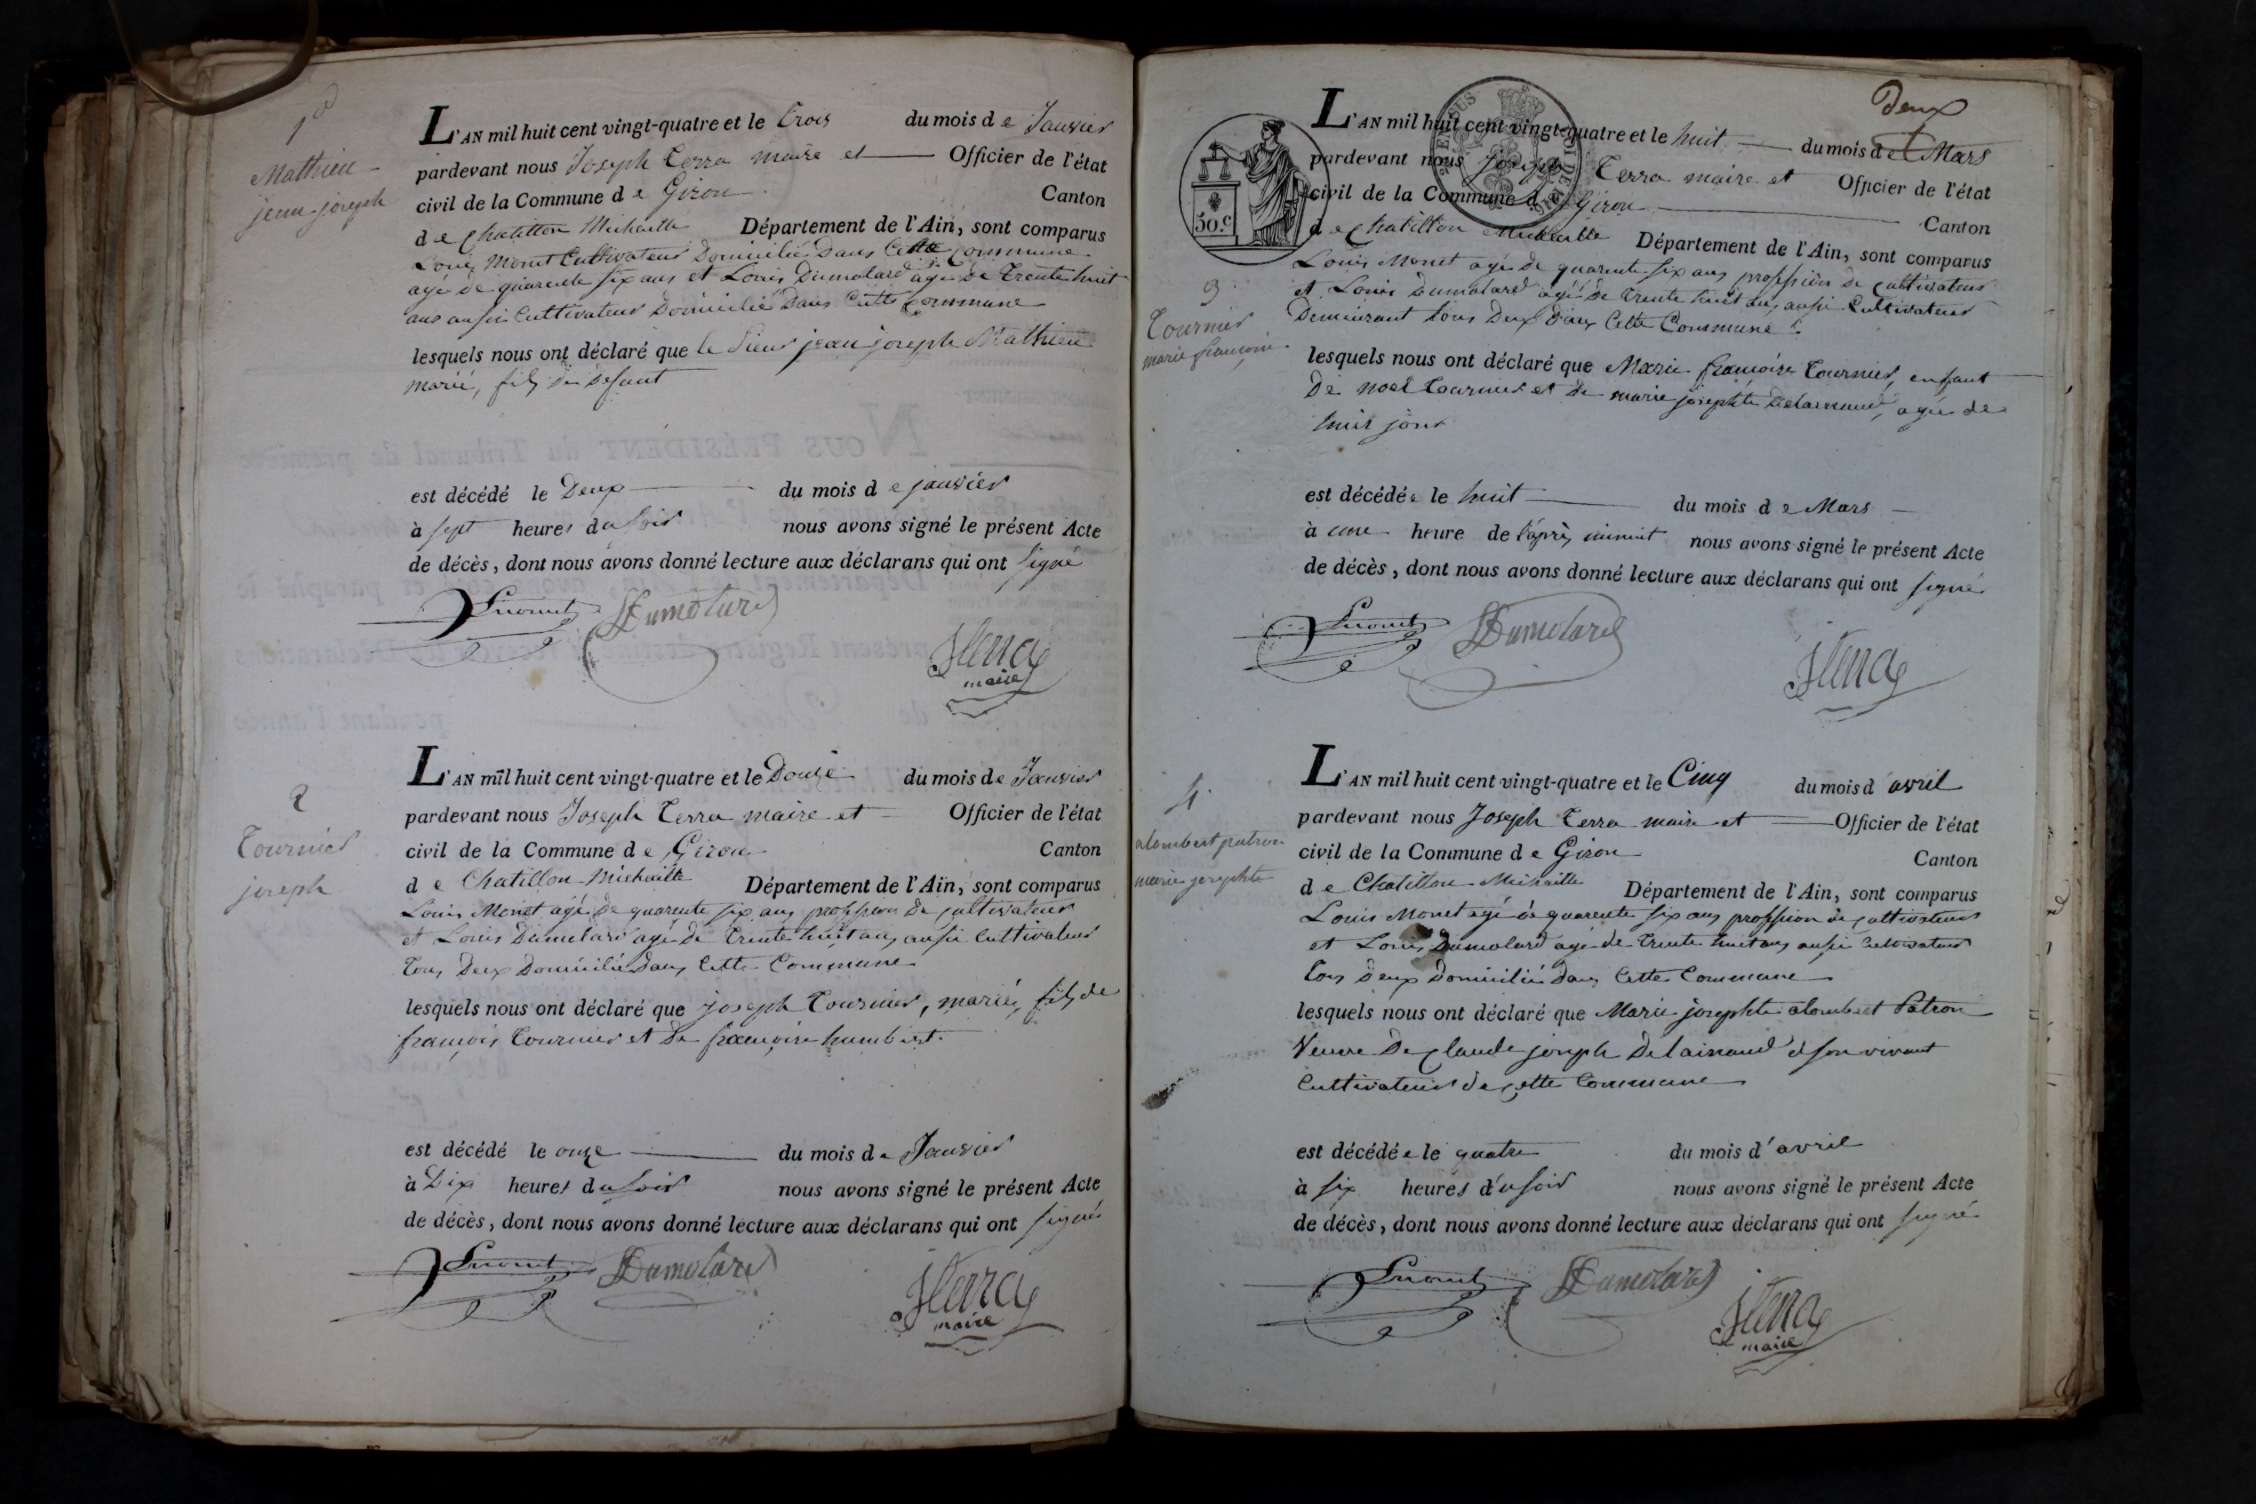 1d
Mathieu
jean joseph
L'AN mil huit cent vingt-quatre et le Trois du mois de Janvier
pardevant nous Joseph Terra maire et Officier de l'état
civil de la Commune de Giron Canton
de Chatillon Michaille Département de l'Ain, sont comparus
Louis Monet Cultivateur Domicilié Dans Cette Commune
agé de quarente six ans et Louis Dumolard agé De Trente huit
ans aussi Cultivateur Domicilié Dans Cette Commune
lesquels nous ont déclaré que le Sieur jean joseph Mathieu
marié, fils de Defunt
est décédé le Deux du mois de janvier
à sept heures du Soir nous avons signé le présent Acte
de décès, dont nous avons donné lecture aux déclarans qui ont signé
Lmonet LDumolard
JTerra
maire
2
Tournier
joseph
L'AN mil huit cent vingt-quatre et le Douze du mois de Janvier
pardevant nous Joseph Terra maire et Officier de l'état
civil de la Commune de Giron Canton
de Chatillon Michaille Département de l'Ain, sont comparus
Louis Monet agé De quarente six ans profession De Cultivateur
et Louis Dumolard agé De Trente huit ans aussi Cultivateur
Tous Deux Domicilié Dans Cette Commune
lesquels nous ont déclaré que joseph Tournier, marié, fils de
françois Tournier et De françoise humbert.
est décédé le onze du mois de Janvier
à Dix heures du Soir nous avons signé le présent Acte
de décès, dont nous avons donné lecture aux déclarans qui ont signé
Lmonet LDumolard
JTerra
maire
Deux
50.c
3
Tournier
marie françoise
L'AN mil huit cent vingt-quatre et le huit du mois de Mars
pardevant nous joseph Terra maire et Officier de l'état
civil de la Commune de Giron Canton
de Chatillon Michaille Département de l'Ain, sont comparus
Louis Monet agé de quarente six ans profession De Cultivateur
et Louis Dumolard agé De Trente huit ans aussi Cultivateur
Demeurant tous Deux Dans Cette Commune
lesquels nous ont déclaré que Marie françoise Tournier, enfant
De noel Tournier et De marie josephte Delainaud, agée de
huit jour
est décédée le huit du mois de Mars
à une heure de l'après minuit nous avons signé le présent Acte
de décès, dont nous avons donné lecture aux déclarans qui ont signé
Lmonet LDumolard
JTerra
4
alombert patron
marie josephte
L'AN mil huit cent vingt-quatre et le Cinq du mois d'avril
pardevant nous Joseph Terra maire et Officier de l'état
civil de la Commune de Giron Canton
de Chatillon Michaille Département de l'Ain, sont comparus
Louis Monet agé de quarente six ans profession de Cultivateur
et Louis Dumolard agé de Trente huit ans aussi Cultivateur
Tous Deux Domicilié Dans Cette Commune
lesquels nous ont déclaré que Marie josephte alombert Patron
Veuve De Claude joseph Delainaud de son vivant
Cultivateur de Cette Commune
est décédée le quatre du mois d'avril
à six heures du Soir nous avons signé le présent Acte
de décès, dont nous avons donné lecture aux déclarans qui ont signé
Lmonet LDumolard
JTerra
maire